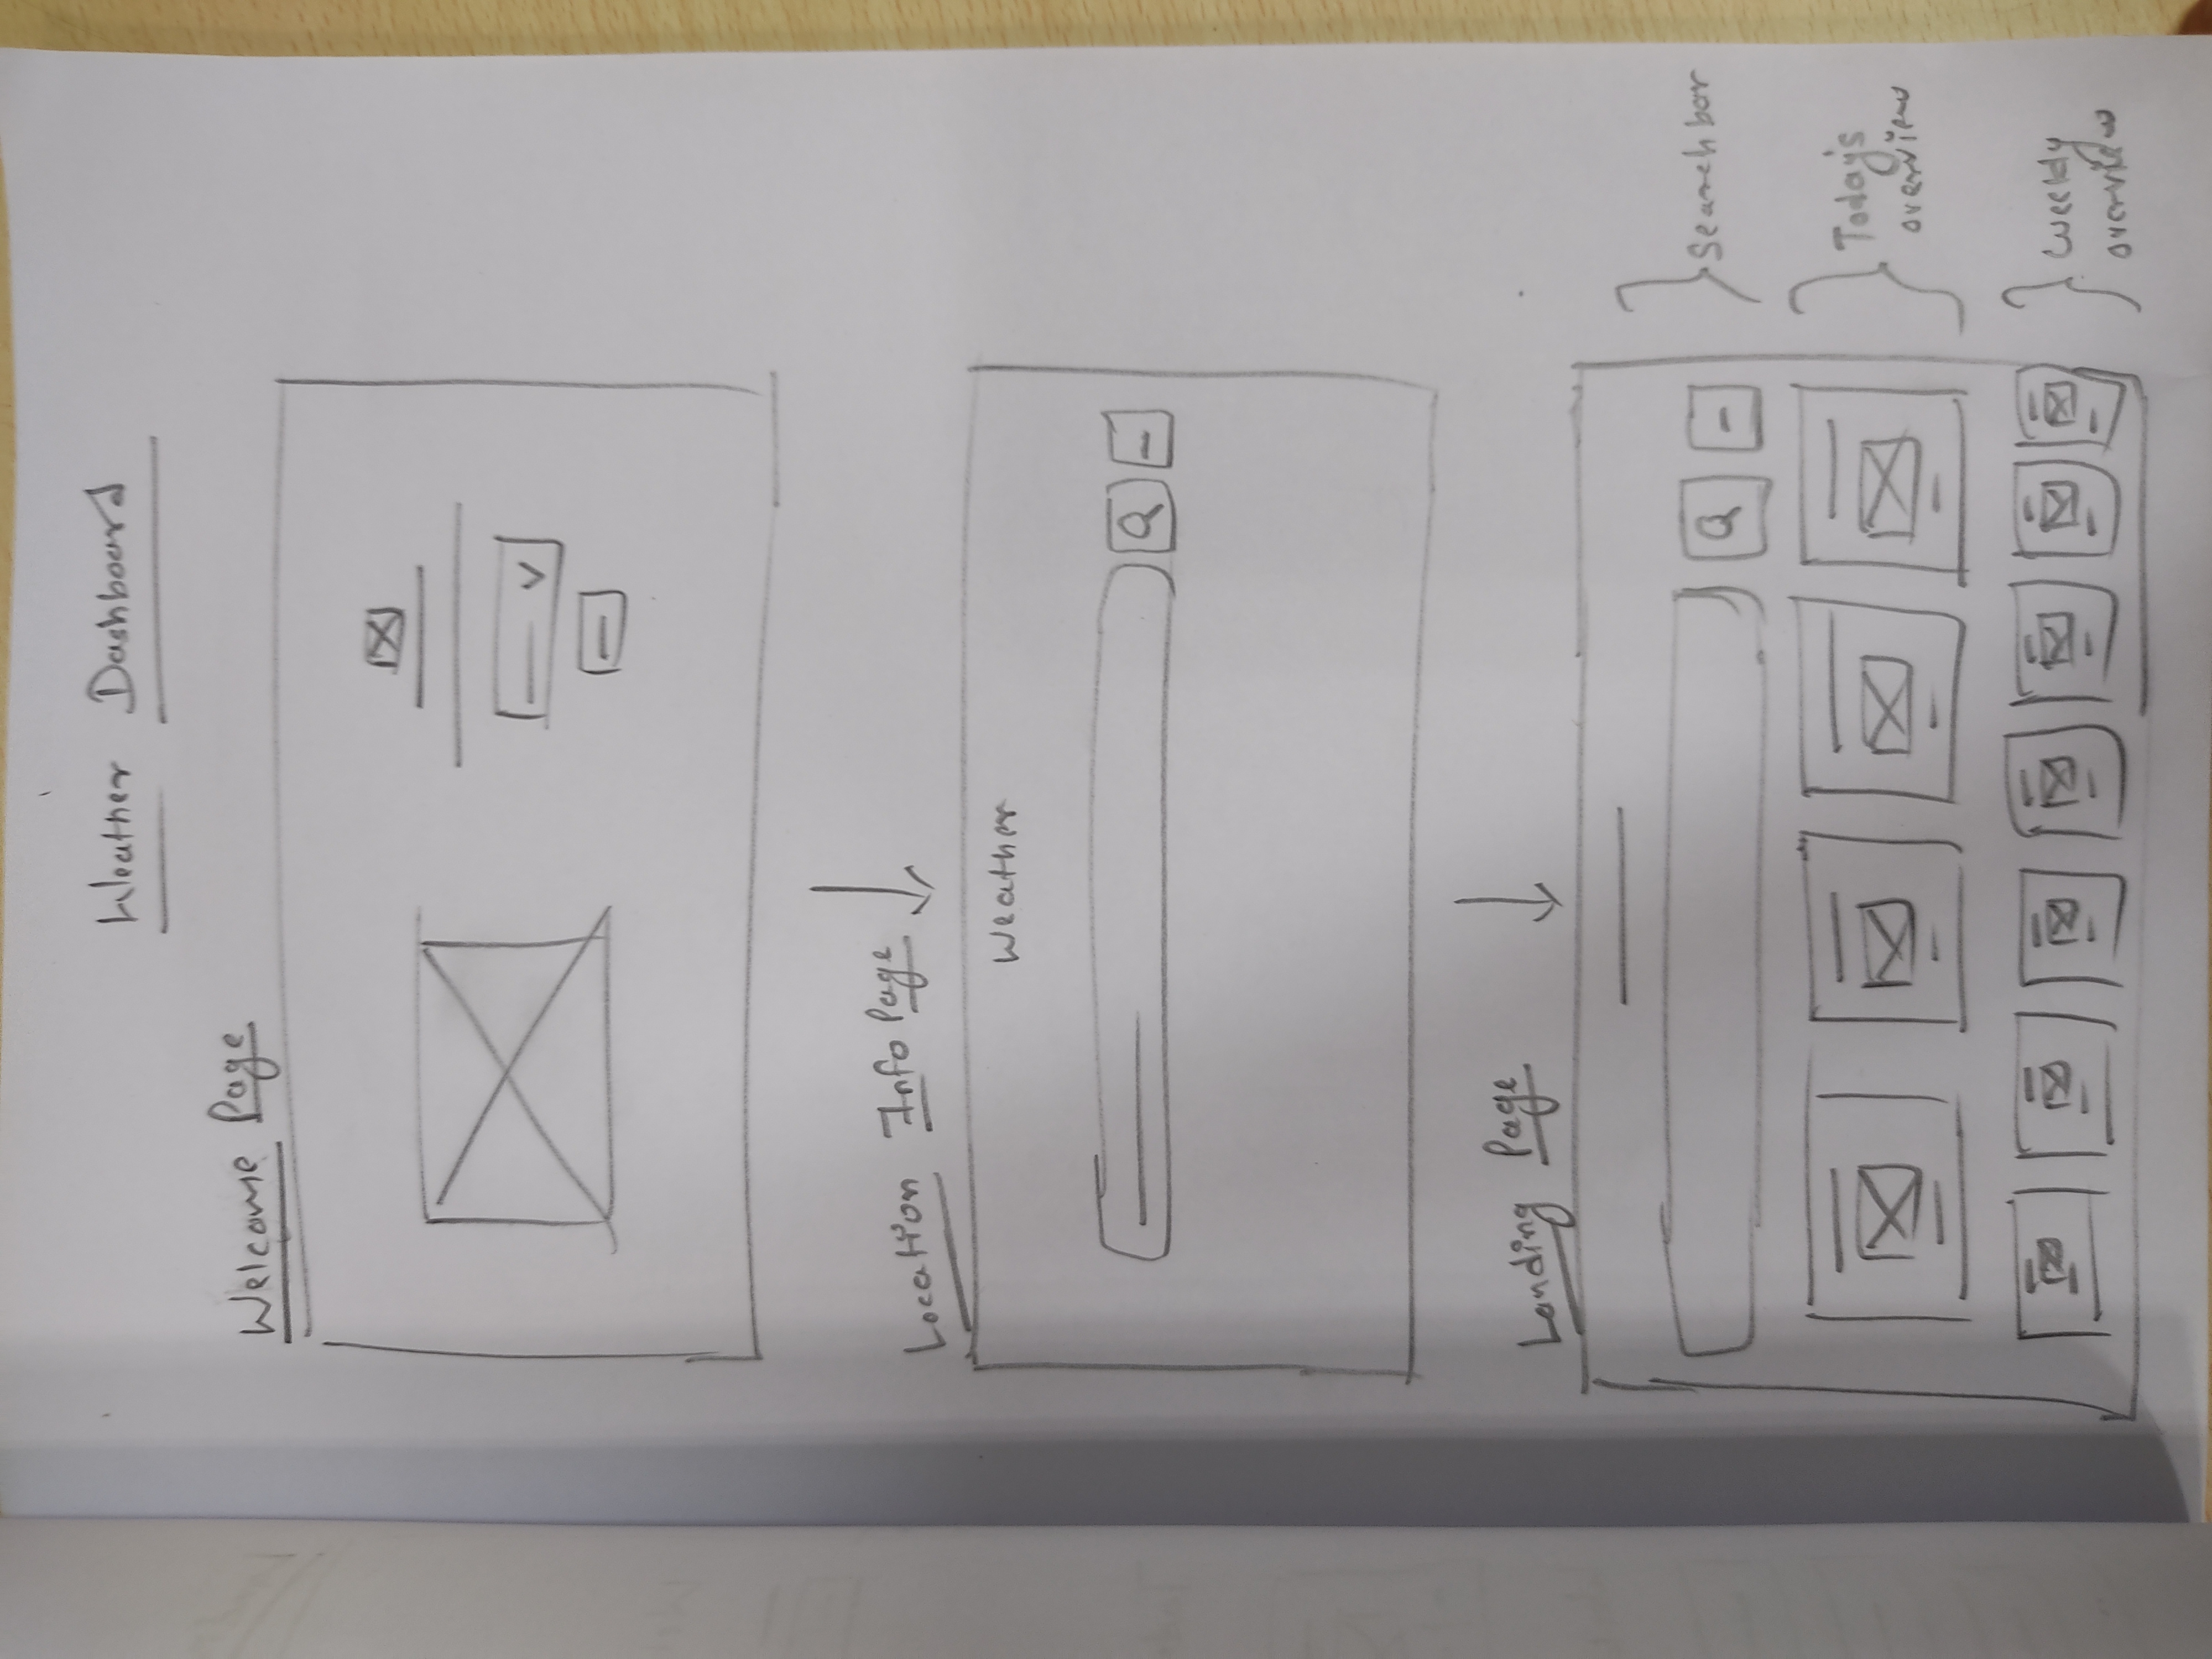 Weather Dashboard
Welcome Page
Location Info Page
Weather
Landing Page
Searchbar
Today's
overview
Weekly
overview